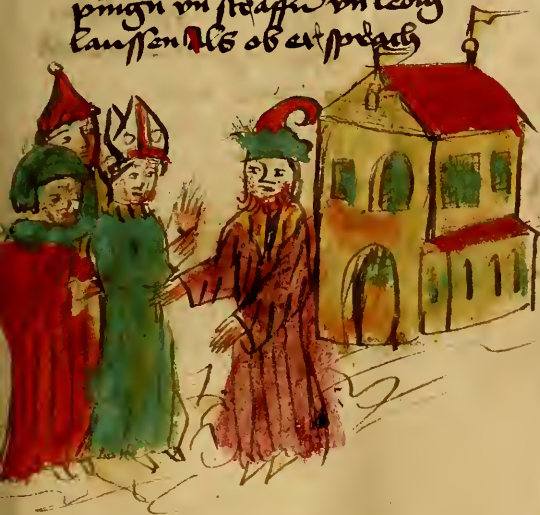 pingu vn straffu vn ledig
laussen Als ob er sprach